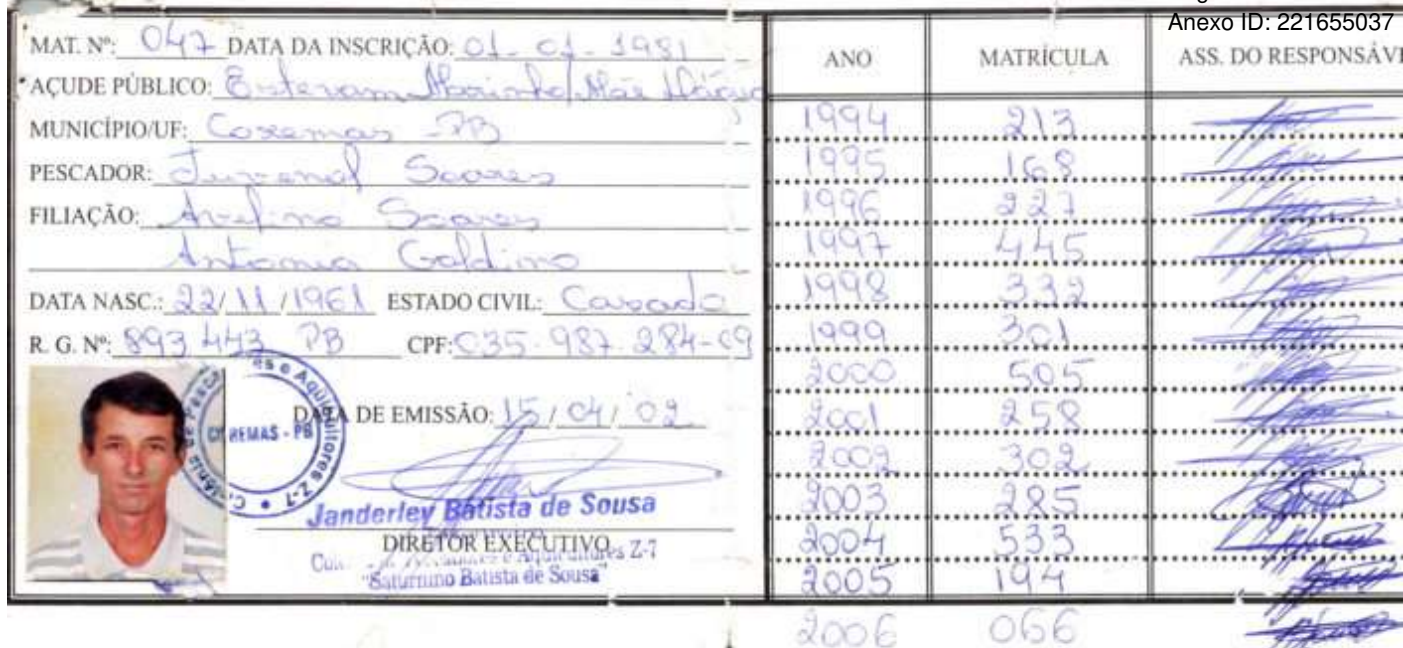 Anexo ID: 221655037
MAT. Nº: 047 DATA DA INSCRIÇÃO: 01-01-1981
AÇUDE PÚBLICO: Estevam Marinho/Mãe D'água
MUNICÍPIO/UF: Coremas-PB
PESCADOR: Juvenal Soares
FILIAÇÃO: Avelino Soares
Antonia Galdino
DATA NASC.: 22/11/1961 ESTADO CIVIL: Casado
R. G. Nº: 893 443 PB CPF: 035.987.284-09
DATA DE EMISSÃO: 15/04/02
Colônia de Pescadores e Aquicultores Z-7
COREMAS - PB
Janderley Batista de Sousa
DIRETOR EXECUTIVO
Aquicultores Z-7
"Saturnino Batista de Sousa"
ANO MATRÍCULA ASS. DO RESPONSÁVE
1994 213
1995 168
1996 227
1997 445
1998 332
1999 301
2000 505
2001 258
2002 302
2003 285
2004 533
2005 194
2006 066